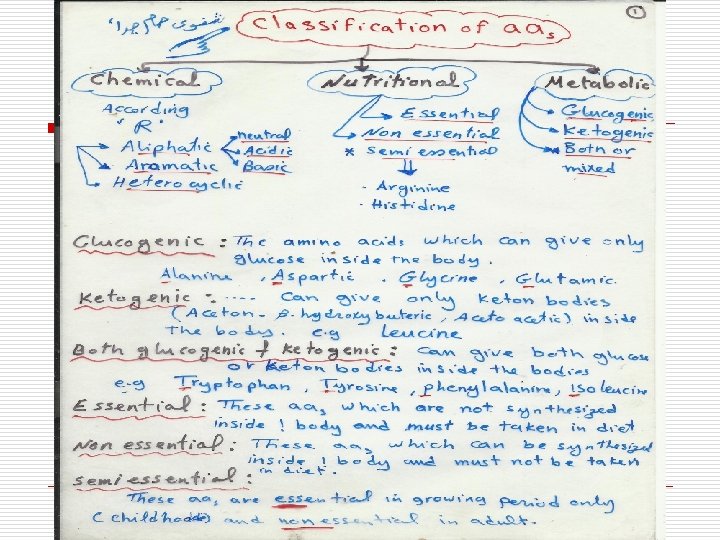 شفوي هام جدا"
Classification of aas
①
Chemical Nutritional Metabolic
According "R"
Aliphatic
neutral
Acidic
Basic
Aromatic
Heterocyclic
Essential
Non essential
* semi essential
- Arginine
- Histidine
Glucogenic
Ketogenic
Both or mixed
Glucogenic : The amino acids which can give only
glucose inside the body.
Alanine , Aspartic . Glycine , Glutamic.
Ketogenic : .... can give only keton bodies
(Aceton - B.hydroxybuteric, Aceto acetic) inside
the body. e.g Leucine
Both glucogenic & ketogenic : can give both glucose
or keton bodies inside the bodies
e.g Tryptophan , Tyrosine , phenylalanine, Isoleucin
Essential : These aas which are not synthesized
inside ! body and must be taken in diet
Non essential : These aas which can be synthesized
inside ! body and must not be taken
in diet.
semi essential :
These aas are essential in growing period only
(childhood) and non essential in adult.